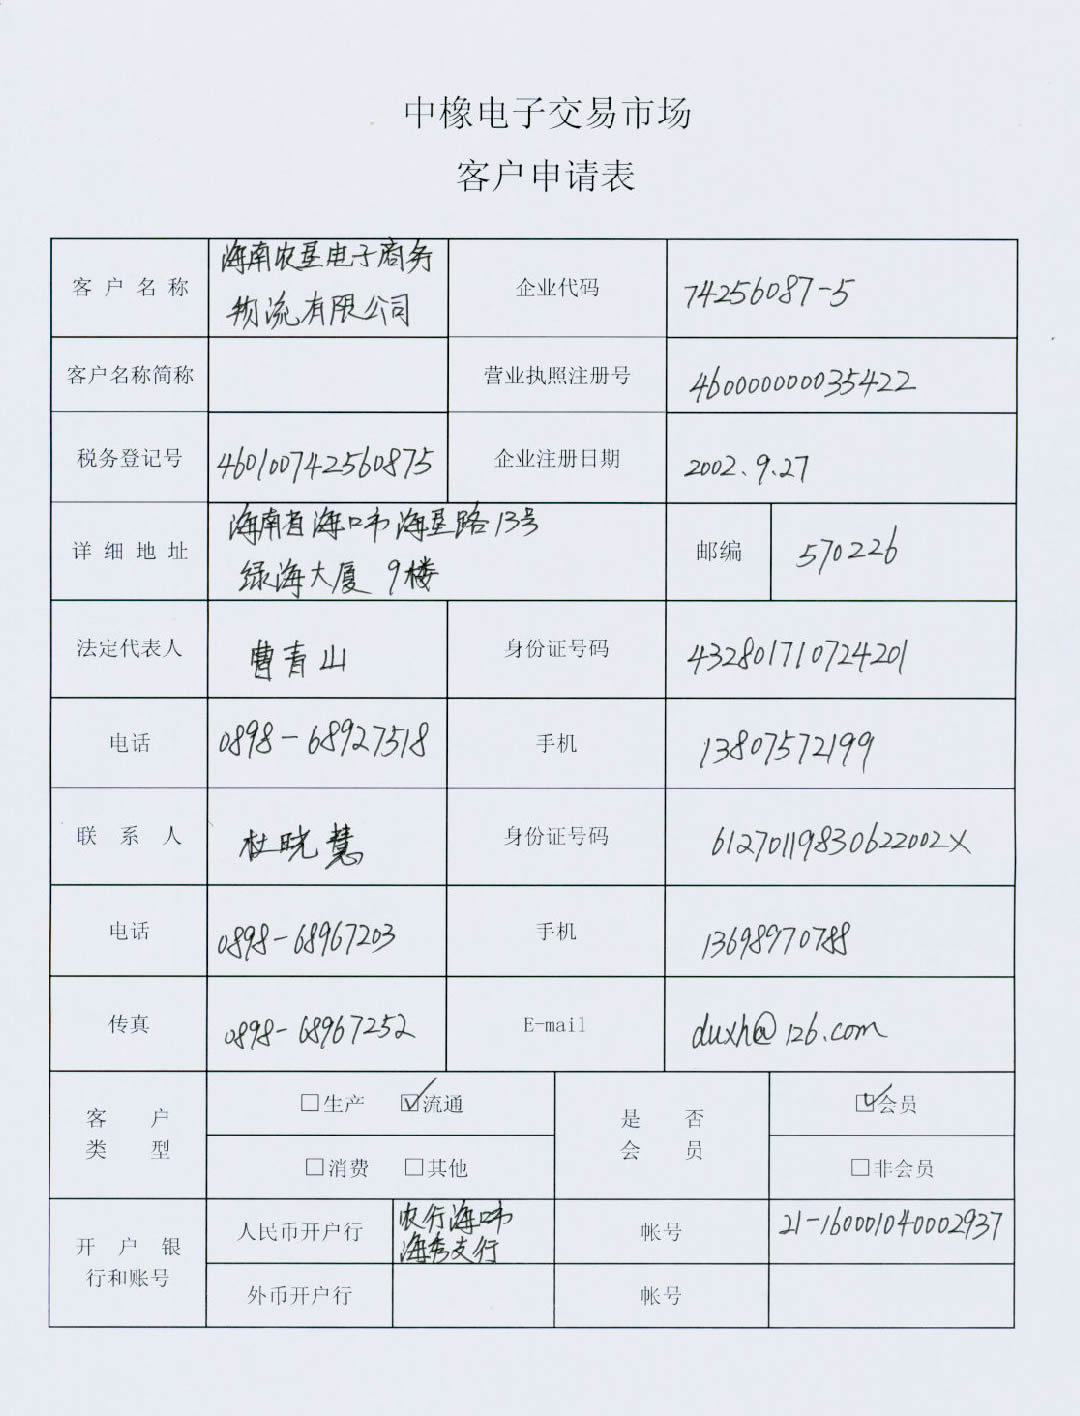 中橡电子交易市场
客户申请表
客户名称 海南农垦电子商务物流有限公司 企业代码 74256087-5
客户名称简称 营业执照注册号 460000000035422
税务登记号 460100742560875 企业注册日期 2002.9.27
详细地址 海南省海口市海垦路13号 绿海大厦 9楼 邮编 570226
法定代表人 曹青山 身份证号码 432801710724201
电话 0898-68927518 手机 13807572199
联系人 杜晓慧 身份证号码 61270119830622002X
电话 0898-68967203 手机 13698970788
传真 0898-68967252 E-mail duxh@126.com
客户类型 □生产 ☑流通 是否会员 ☑会员
□消费 □其他 □非会员
开户银行和账号 人民币开户行 农行海口市海秀支行 帐号 21-160001040002937
外币开户行 帐号